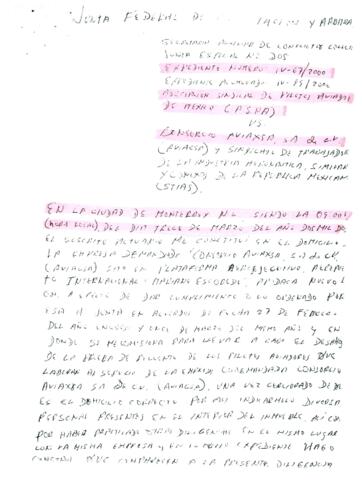 JUNTA FEDERAL DE CONCILIACION Y ARBITRA
SECRETARIA AUXILIAR DE CONFLICTOS COLECT
JUNTA ESPECIAL No 2 DOS
EXPEDIENTE NUMERO: IV-67/2000
EXPEDIENTE ACUMULADO IV-85/2000
ASOCIACION SINDICAL DE PILOTOS AVIADOR
DE MEXICO (ASPA)
VS
CONSORCIO AVIAXSA, SA de CV
(AVIACSA) Y SINDICATO DE TRABAJADOR
DE LA INDUSTRIA AERONAUTICA, SIMILAR
Y CONEXOS DE LA REPUBLICA MEXICAN
(STIAS).
EN LA CIUDAD DE MONTERREY NL SIENDO LA 09:00
(HORA LOCAL) DEL DIA TRECE DE MARZO DEL AÑO DOS MIL
EL SUSCRITO ACTUARIO ME CONSTITUI EN EL DOMICILIO
LA EMPRESA DEMANDADA "CONSORCIO AVIAXSA, S.A de C.V.
(AVIACSA) SITO EN PLATAFORMA
INTERNACIONAL MARIANO ESCOBEDO, APODACA NUEVO L
A EFECTO DE DAR CUMPLIMIENTO A LO ORDENADO POR
JUNTA EN ACUERDO DE FECHA 27 DE FEBRERO
DEL AÑO EN CURSO Y ONCE DE MARZO DEL MISMO AÑO Y EN
DONDE SE ME COMISIONA PARA LLEVAR A CABO EL DESAHO
DE LA PRUEBA DE RECUENTO DE LOS PILOTOS AVIADORES QUE
LABORAN AL SERVICIO DE LA EMPRESA CODEMANDADA CONSORCIO
AVIAXSA SA DE CV. (AVIACSA). UNA VEZ CERCIORADO DE
ES EL DOMICILIO CORRECTO POR DIVERSO
PERSONAL PRESENTES EN EL INTERIOR DEL INMUEBLE
POR HABER PRACTICADO OTRAS DILIGENCIAS EN EL MISMO LUGAR
CON LA MISMA EMPRESA Y EN EXPEDIENTE HAGO
CONSTAR QUE COMPARECEN A LA PRESENTE DILIGENCIA